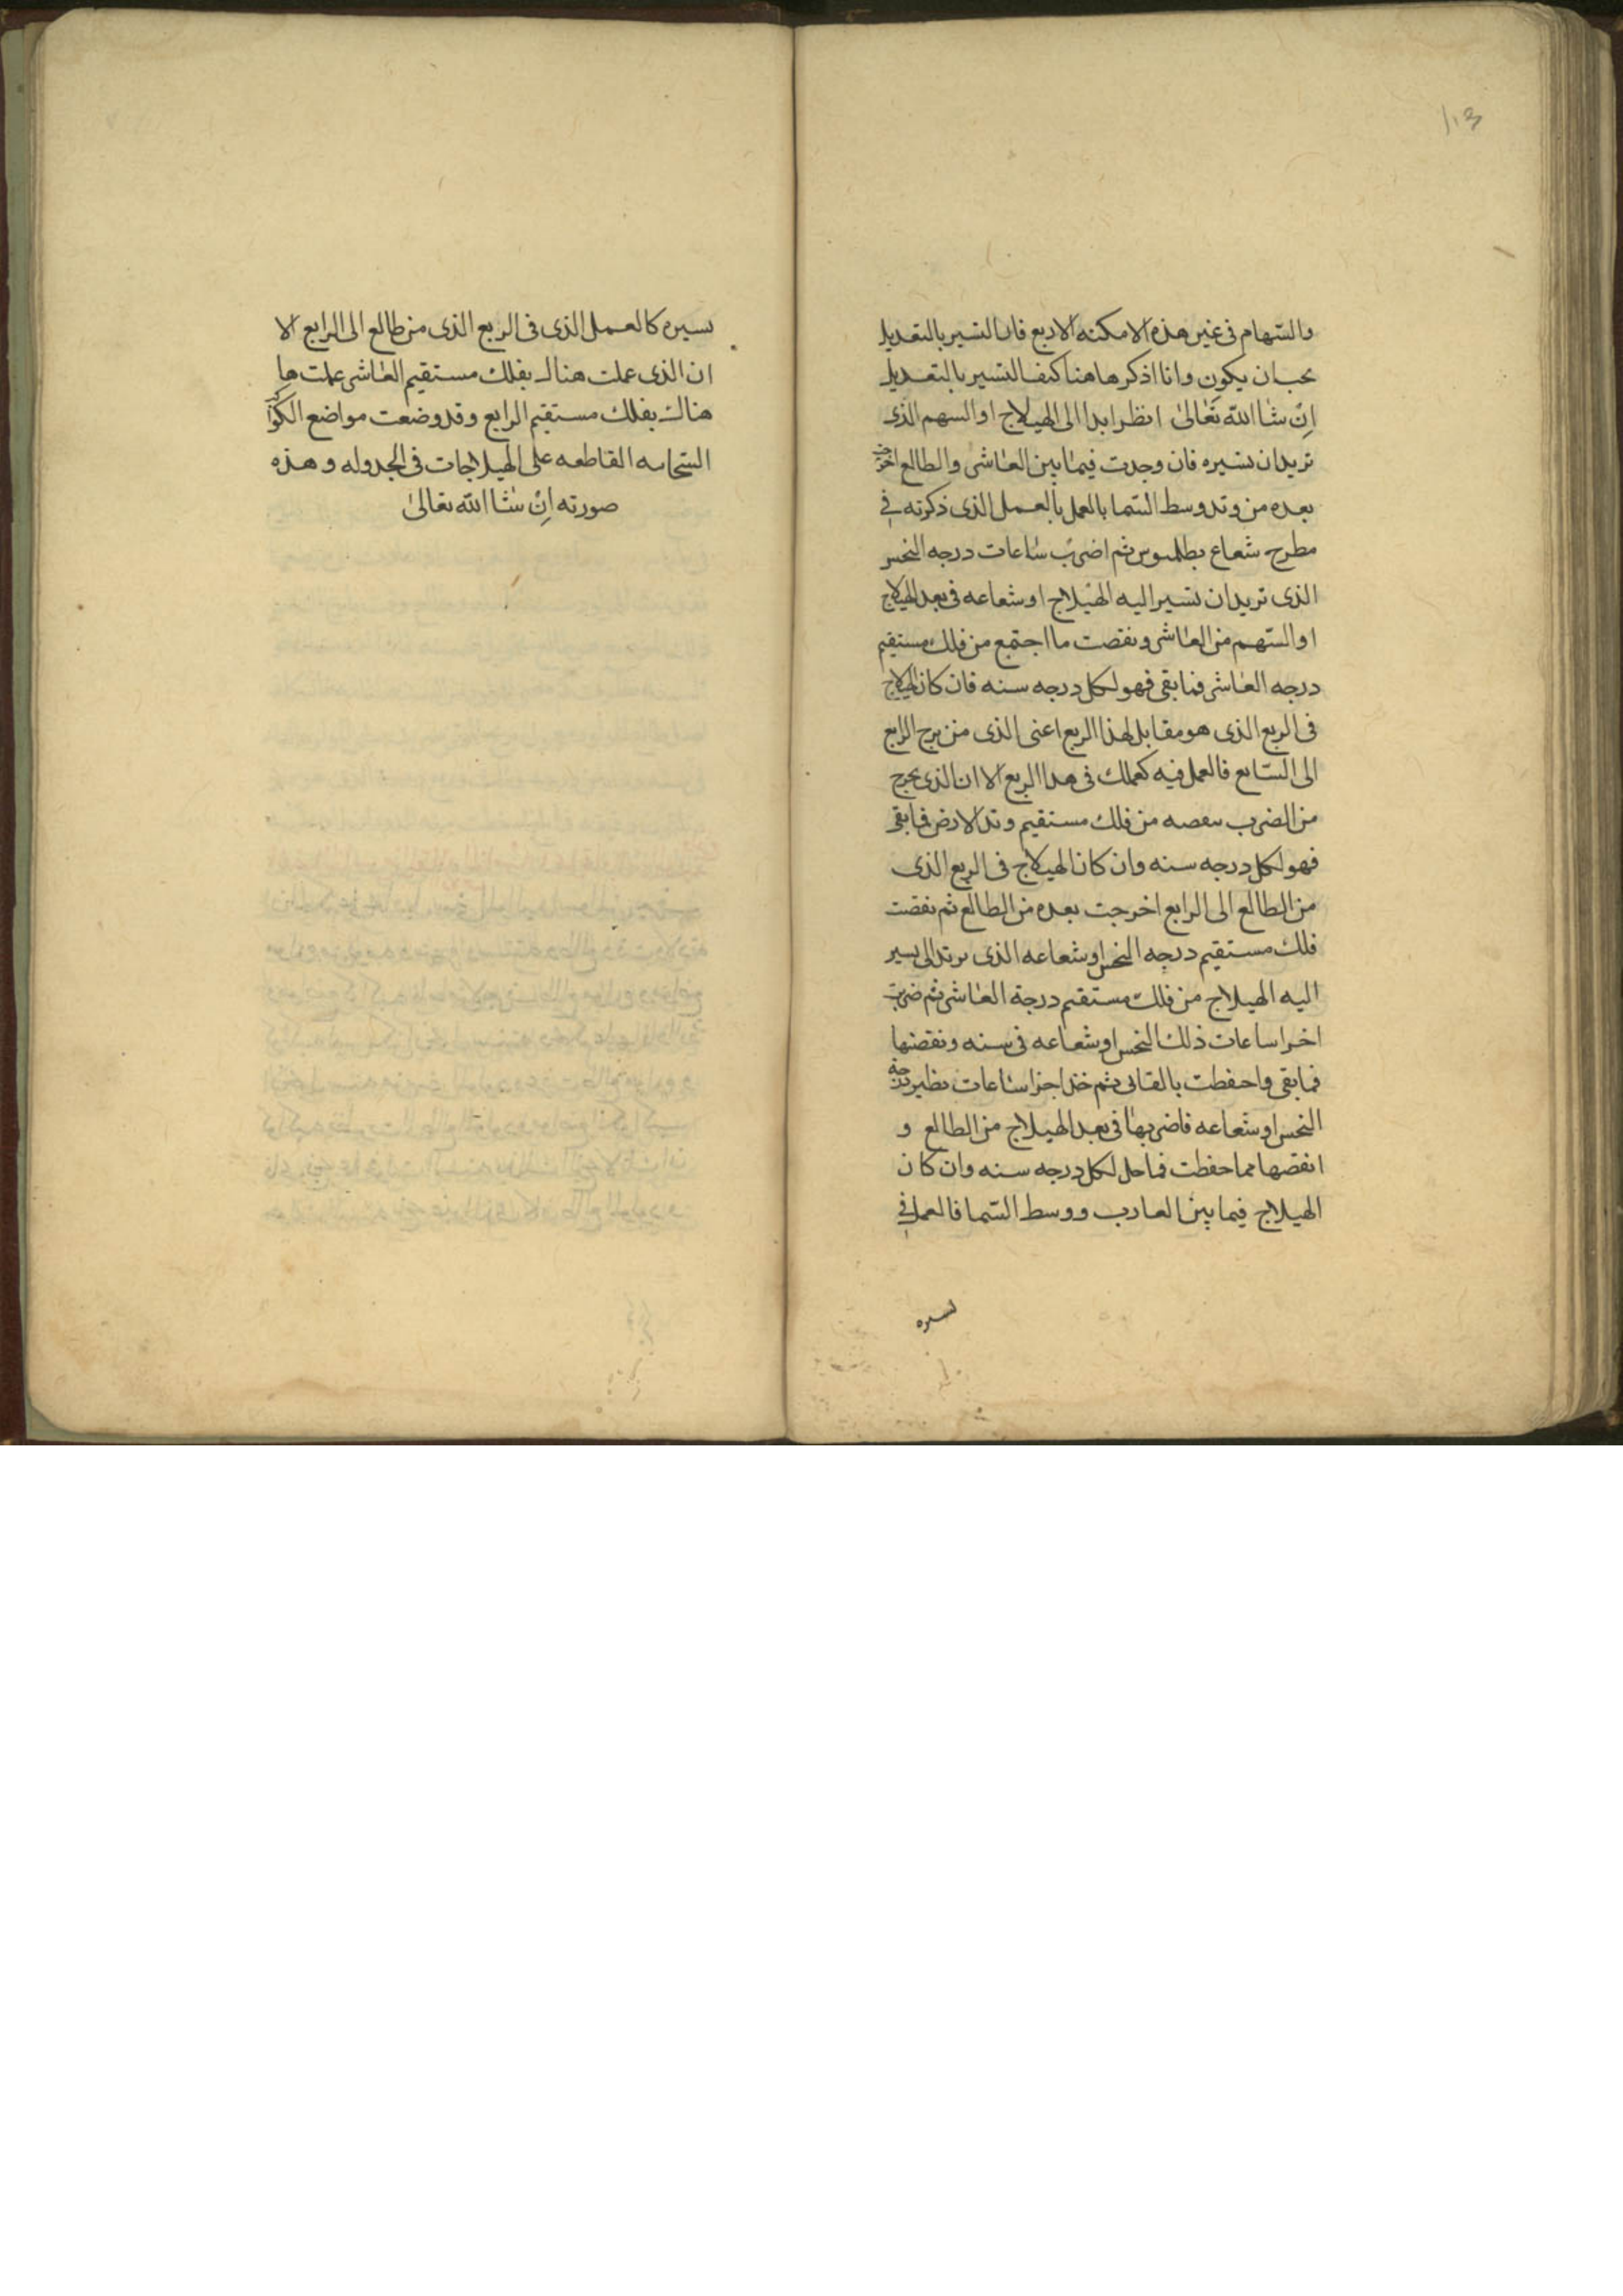 113
والسهام فى غير هذه الامكنه الاربع فان التسير بالتعديل
يحب ان يكون وانا اذكر هاهنا كيف التسير بالتعديل
اِنْ شا الله تَعَالىٰ انظر ابدا الى الهيلاج او السهم الذى
تريد ان تسيره فان وجدت فيما بين العاشر والطالع اخرجت
بعده من وتد وسط السما بالعمل بالعمل الذى ذكرته فى
مطرح شعاع بطلميوس ثم اضرب ساعات درجه النحس
الذى تريد ان تسير اليه الهيلاج او شعاعه فى بعد الهيلاج
او السهم من العاشر ونقصت ما اجتمع من فلك مستقيم
درجه العاشر فما بقى فهو لكل درجه سنه فان كان الهيلاج
فى الربع الذى هو مقابل لهذا الربع اعنى الذى من برج الرابع
الى السابع فالعمل فيه كعملك فى هدا الربع الا ان الذى يخرج
من الضرب سقصه من فلك مستقيم وتد الارض فما بقى
فهو لكل درجه سنه وان كان الهيلاج فى الربع الذى
من الطالع الى الرابع اخرجت بعده من الطالع ثم نقصت
فلك مستقيم درجه النحس او شعاعه الذى تسير
اليه الهيلاج من فلك مستقيم درجة العاشر ثم ضربت
اخرا ساعات ذلك النحس او شعاعه فى سنه ونقصتها
فما بقى واحفظت ثم خذ اجزا ساعات نظير درجه
النحس او شعاعه فاضربها فى بعد الهيلاج من الطالع و
انقصها مما حفظت فما حل لكل درجه سنه وان كان
الهيلاج فيما بين العارب ووسط السما فالعمل فى
تسيره
تسيره كالعمل الذى فى الربع الذى من طالع الى الرابع الا
ان الذى عملت هناك بفلك مستقيم العاشر عملت ها
هناك بفلك مستقيم الرابع وقد وضعت مواضع الكواكب
القاطعه على الهيلاجات فى الجدوله وهذه
صورته اِنْ شا الله تعالىٰ